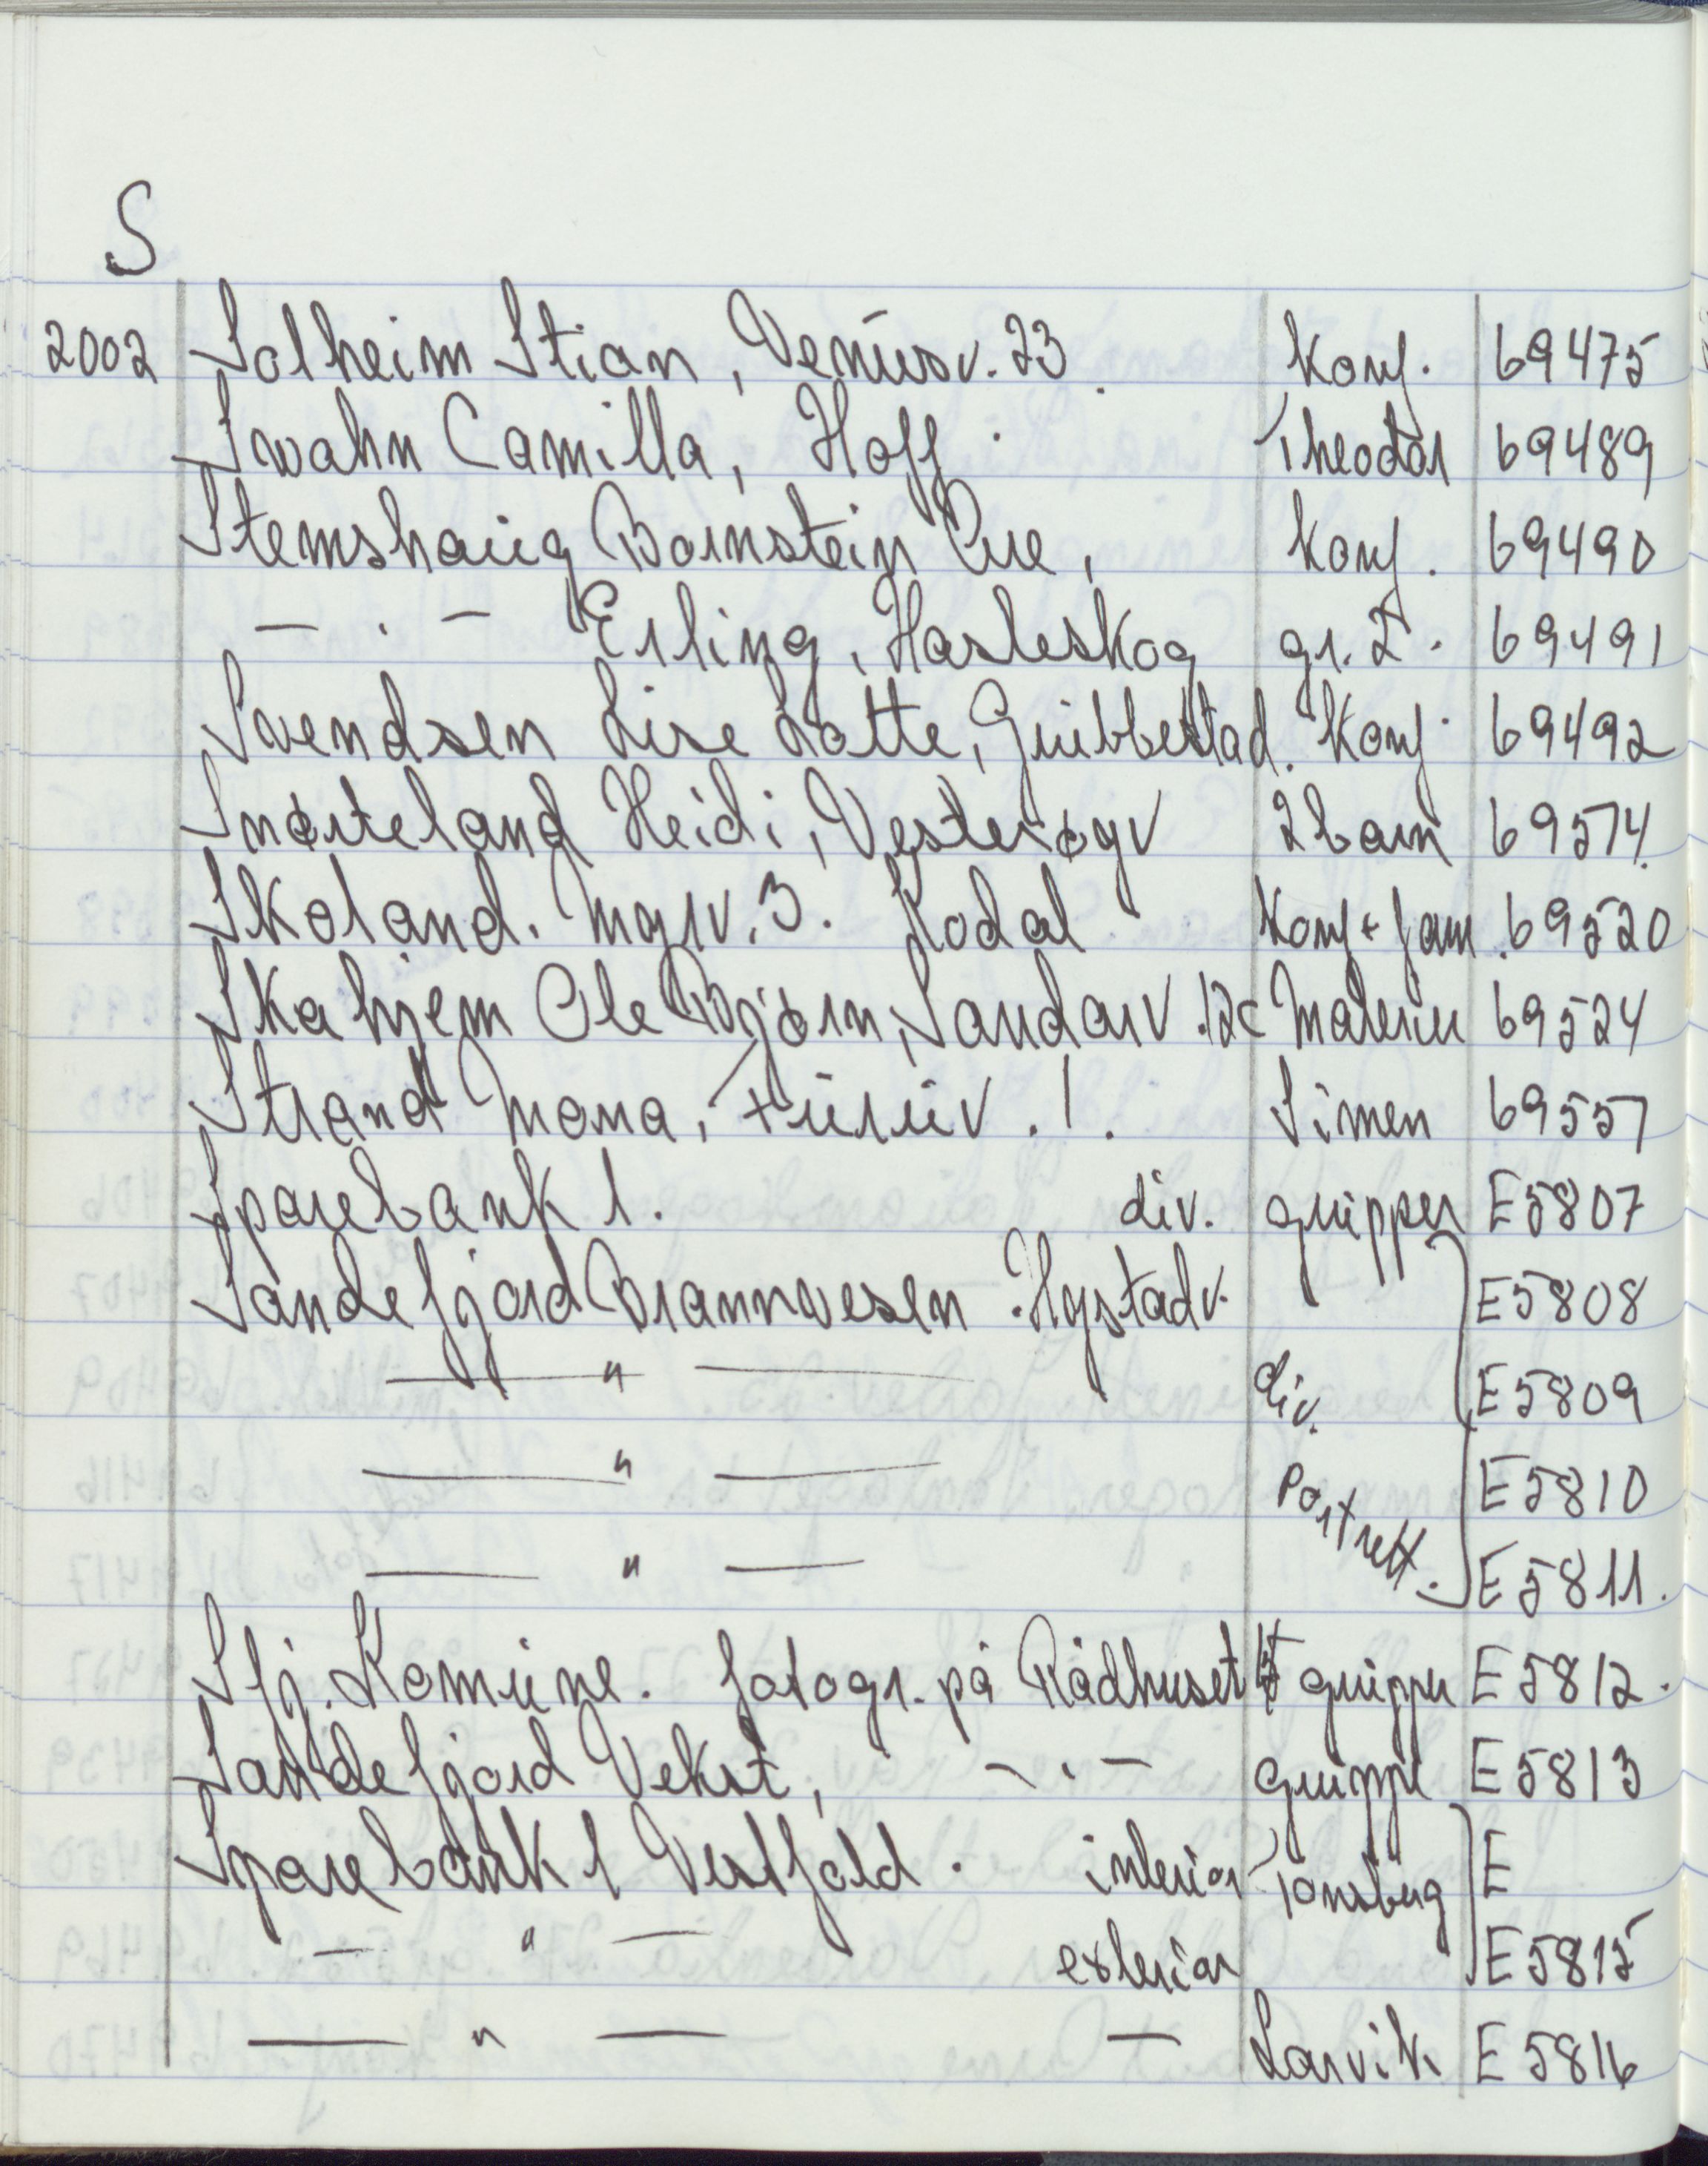 S
2002 Solheim Stian, Venusv. 23. Konf. 69475
Swahn Camilla, Hoff. Theodor 69489
Stemshaug Bornstein Une, Konf. 69490
— . — Erling, Hasleskog gr. 2. 69491
Svendsen Lise Lotte, Grubbestad. Konf. 69492
Snørteland Heidi, Vesterøyv 2 barn 69574.
Skoland. Myrv. 3. Kodal Konf + fam. 69520
Skahjem Ole Bjørn, Sandarv. 12c Malerier 69524
Strand Mona, Furuv. 1. Simen 69557
Sparebank 1. div. grupper E5807
Sandefjord Brannvesen. Hystadv. E5808
— " — div. E5809
— " — Portrett. E5810
— " — E5811.
Sfj. Komune. fotogr. på Rådhuset grupper E5812.
Sandefjord Vekst, — . — gruppe E5813
Sparebank 1 Vestfold. interiør Tønsberg E
— " — exteriør E5815
— " — — Larvik E5816